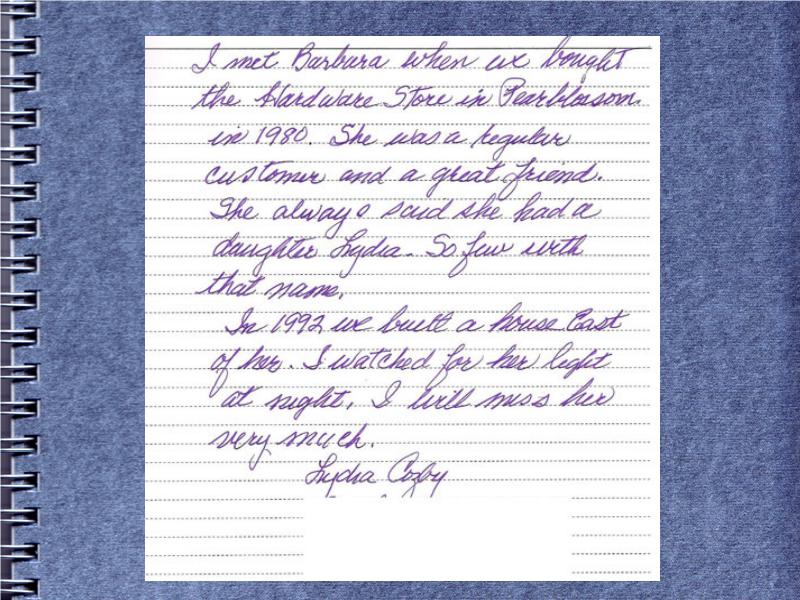 I met Barbara when we bought
the Hardware Store in Pearblossom
in 1980. She was a regular
customer and a great friend.
She always said she had a
daughter Lydia. So few with
that name.
In 1992 we built a house East
of her. I watched for her light
at night. I will miss her
very much.
Lydia Cozby